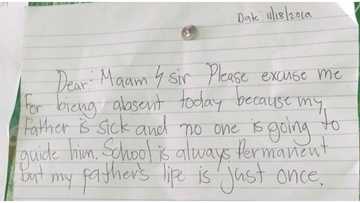 Date 11/18/2019
Dear: Maam & sir Please excuse me
For being absent today because my
Father is sick and no one is going to
guide him. School is always Permanent
but my father's life is just once.